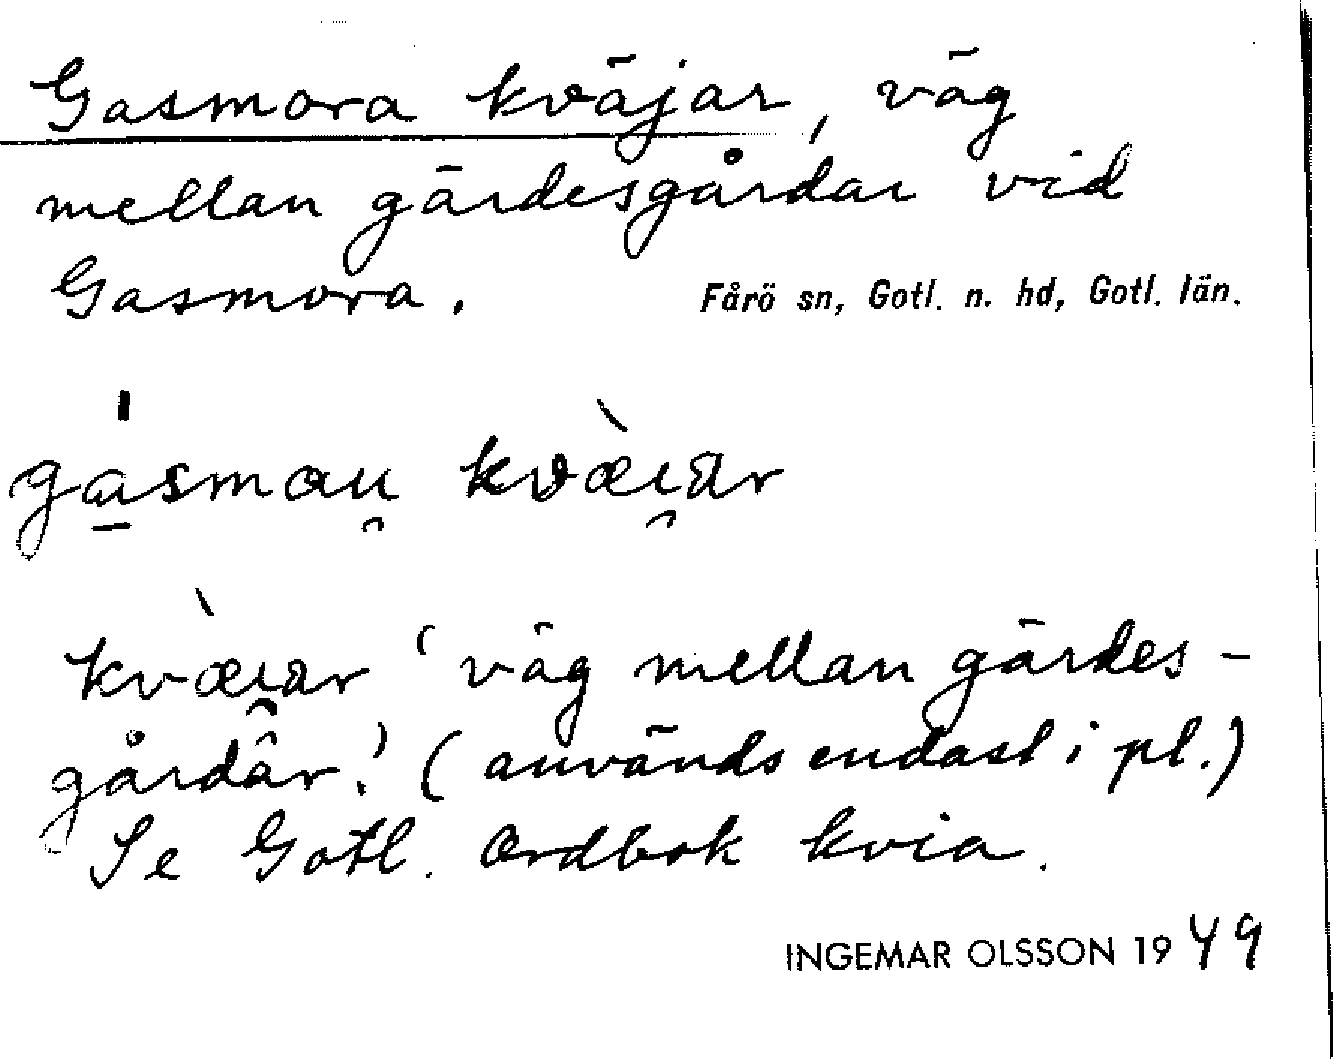 Gasmora kväjar, väg
mellan gärdesgårdar vid
Gasmora.
Fårö sn, Gotl. n. hd, Gotl. län.
kväjar 'väg mellan gärdes-
gårdar.' (används endast i pl.)
Se Gotl. Ordbok kvia.
INGEMAR OLSSON 1949